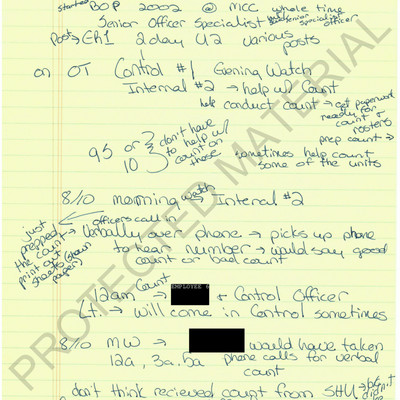 started BOP 2002 @ MCC whole time
Senior Officer specialist
officer
Post → GR1 2 day U2 various
posts
on OT Control #1 Evening Watch
Internal #2 → help w/ Count
help conduct count → get paperwork
ready for
count &
rosters
prep count →
95 or
10
don't have
to help w/
count on
these
sometimes help count
some of the units
8/10 morning watch → Internal #2
just
prepped
the count →
print out
sheets/
papers
officers call in
verbally over phone → picks up phone
to hear number → would say good
count or bad count
12am count → EMPLOYEE 6 + Control Officer
Lt. → will come in Control sometimes
8/10 MW → would have taken
12a, 3a, 5a phone calls for verbal
count
don't think recieved count from SHU →
did
PROTECTED MATERIAL